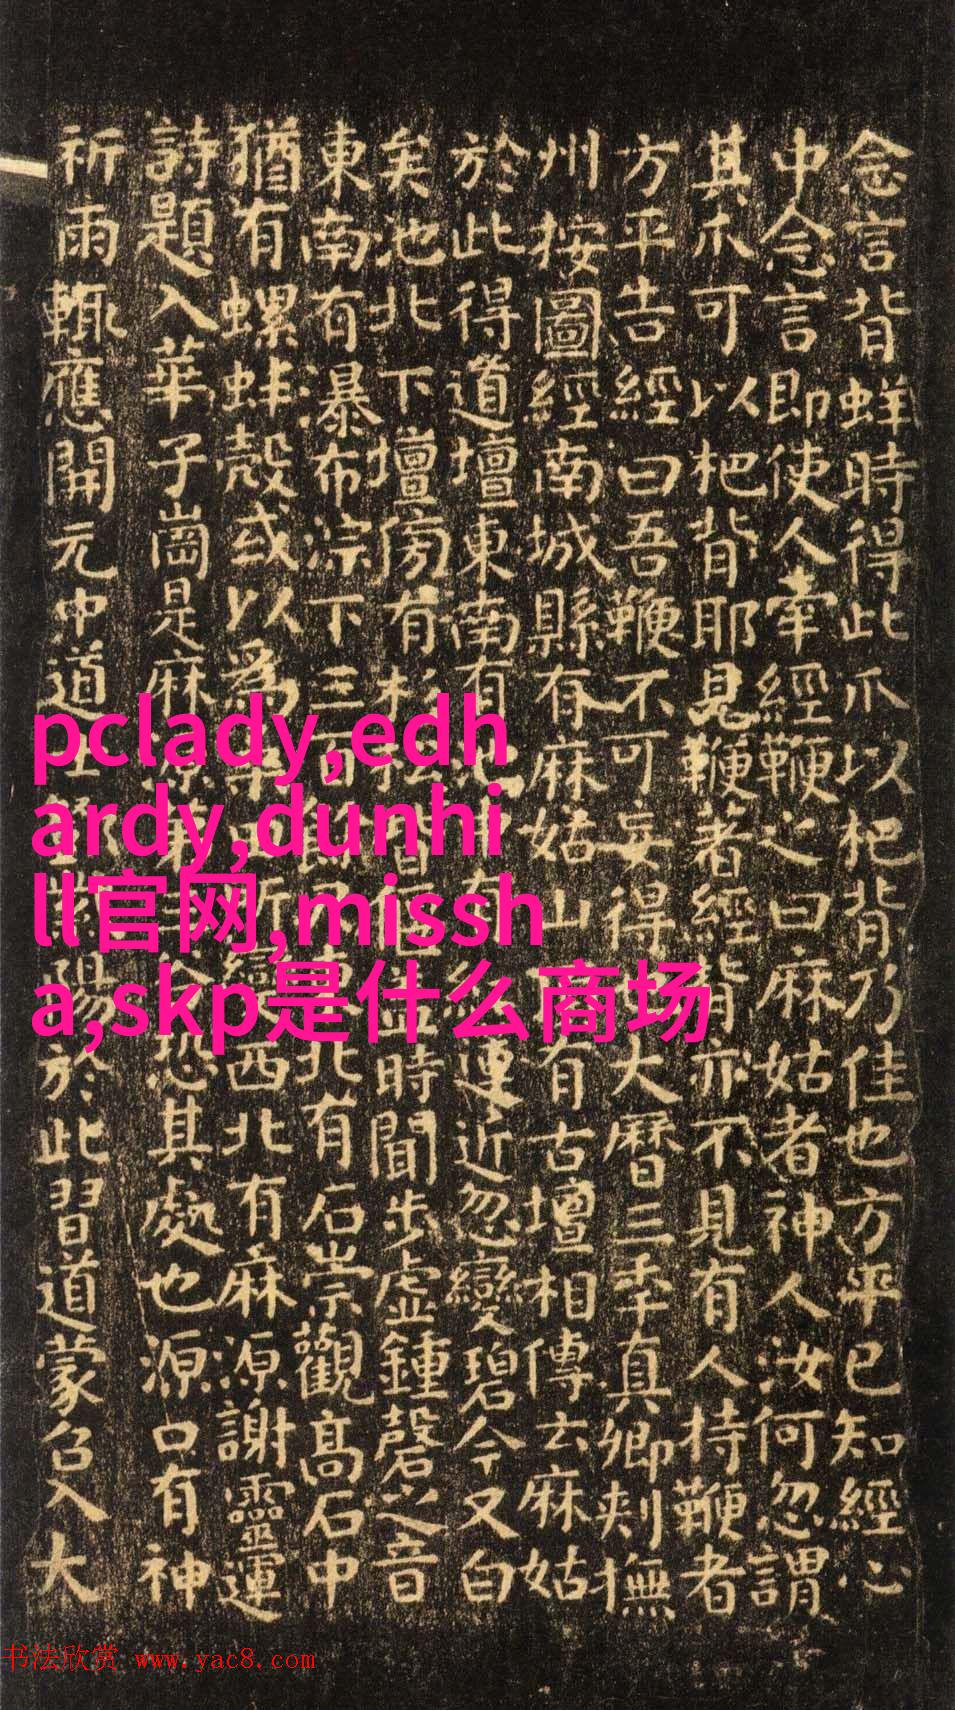 念言背蛘時得此爪以杷背乃佳也方平已知經心
中念言即使人牽經鞭之曰麻姑者神人汝何忽謂
其爪可以杷背耶見鞭著經背亦不見有人持鞭者
方平告經曰吾鞭不可妄得大曆三年真卿刺撫
州按圖經南城縣有麻姑山有古壇相傳云麻姑
於此得道壇東南有池近忽變碧今又白
矣池北下壇傍有杉松時聞步虛鍾磬之音
東南有瀑布淙下三百北有石崇觀高石中
猶有螺蚌殼或以為西北有麻源謝靈運
詩題入華子崗是麻恐其處也源口有神
祈雨輒應開元中道於此習道蒙召入大
pclady,edh
ardy,dunhi
ll官网,missh
a,skp是什么商场
书法欣赏 www.yac8.com